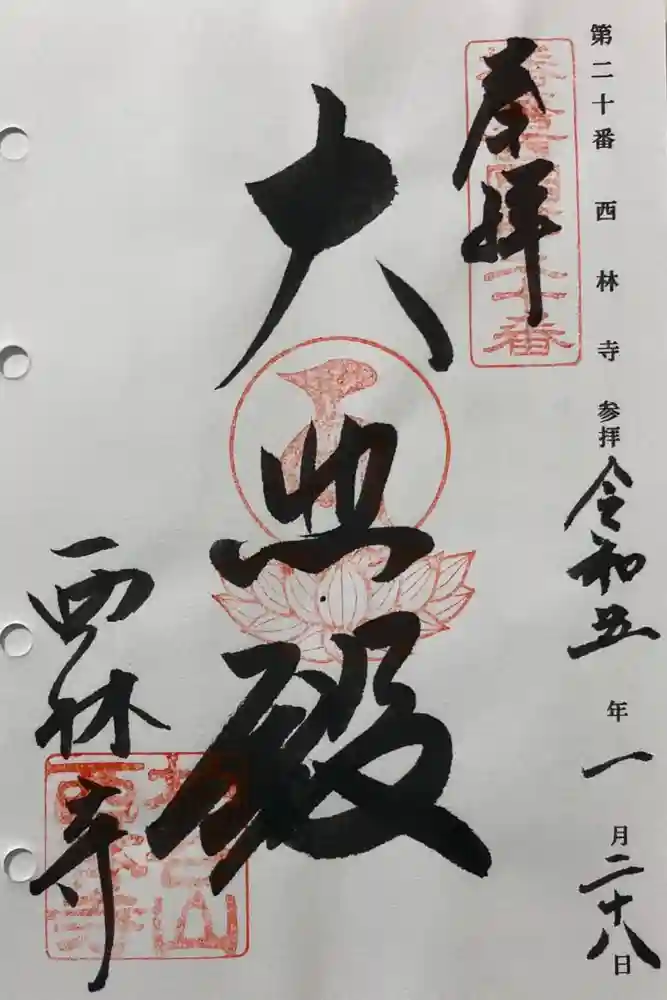 第二十番 西林寺 参拝 令和五年一月二十八日
奉拝
大悲殿
西林寺